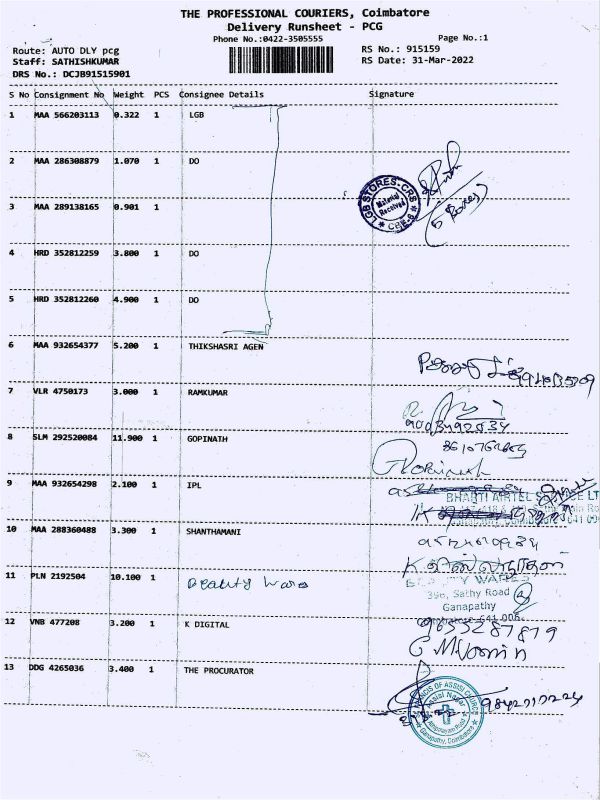 THE PROFESSIONAL COURIERS, Coimbatore
Delivery Runsheet - PCG
Phone No.:0422-3505555
Page No.:1
Route: AUTO DLY pcg
Staff: SATHISHKUMAR
DRS No.: DCJB91515901
RS No.: 915159
RS Date: 31-Mar-2022
S No Consignment No Weight PCS Consignee Details Signature
1 MAA 566203113 0.322 1 LGB
2 MAA 286308879 1.070 1 DO
LGB STORES-CRS
Material Received
CBE-6
(5 Boxes)
3 MAA 289138165 0.901 1
4 HRD 352812259 3.800 1 DO
5 HRD 352812260 4.900 1 DO
6 MAA 932654377 5.200 1 THIKSHASRI AGEN
7 VLR 4750173 3.000 1 RAMKUMAR
8 SLM 292520084 11.900 1 GOPINATH
Gopinath
9 MAA 932654298 2.100 1 IPL
BHARTI AIRTEL
10 MAA 288360488 3.300 1 SHANTHAMANI
11 PLN 2192504 10.100 1 Beauty Ware
BEAUTY WARES
396, Sathy Road
Ganapathy
Coimbatore-641 006.
12 VNB 477208 3.200 1 K DIGITAL
9655287879
13 DDG 4265036 3.400 1 THE PROCURATOR
FRANCIS OF ASSISI CHURCH
Assisi Nagar
Ganapathy, Coimbatore